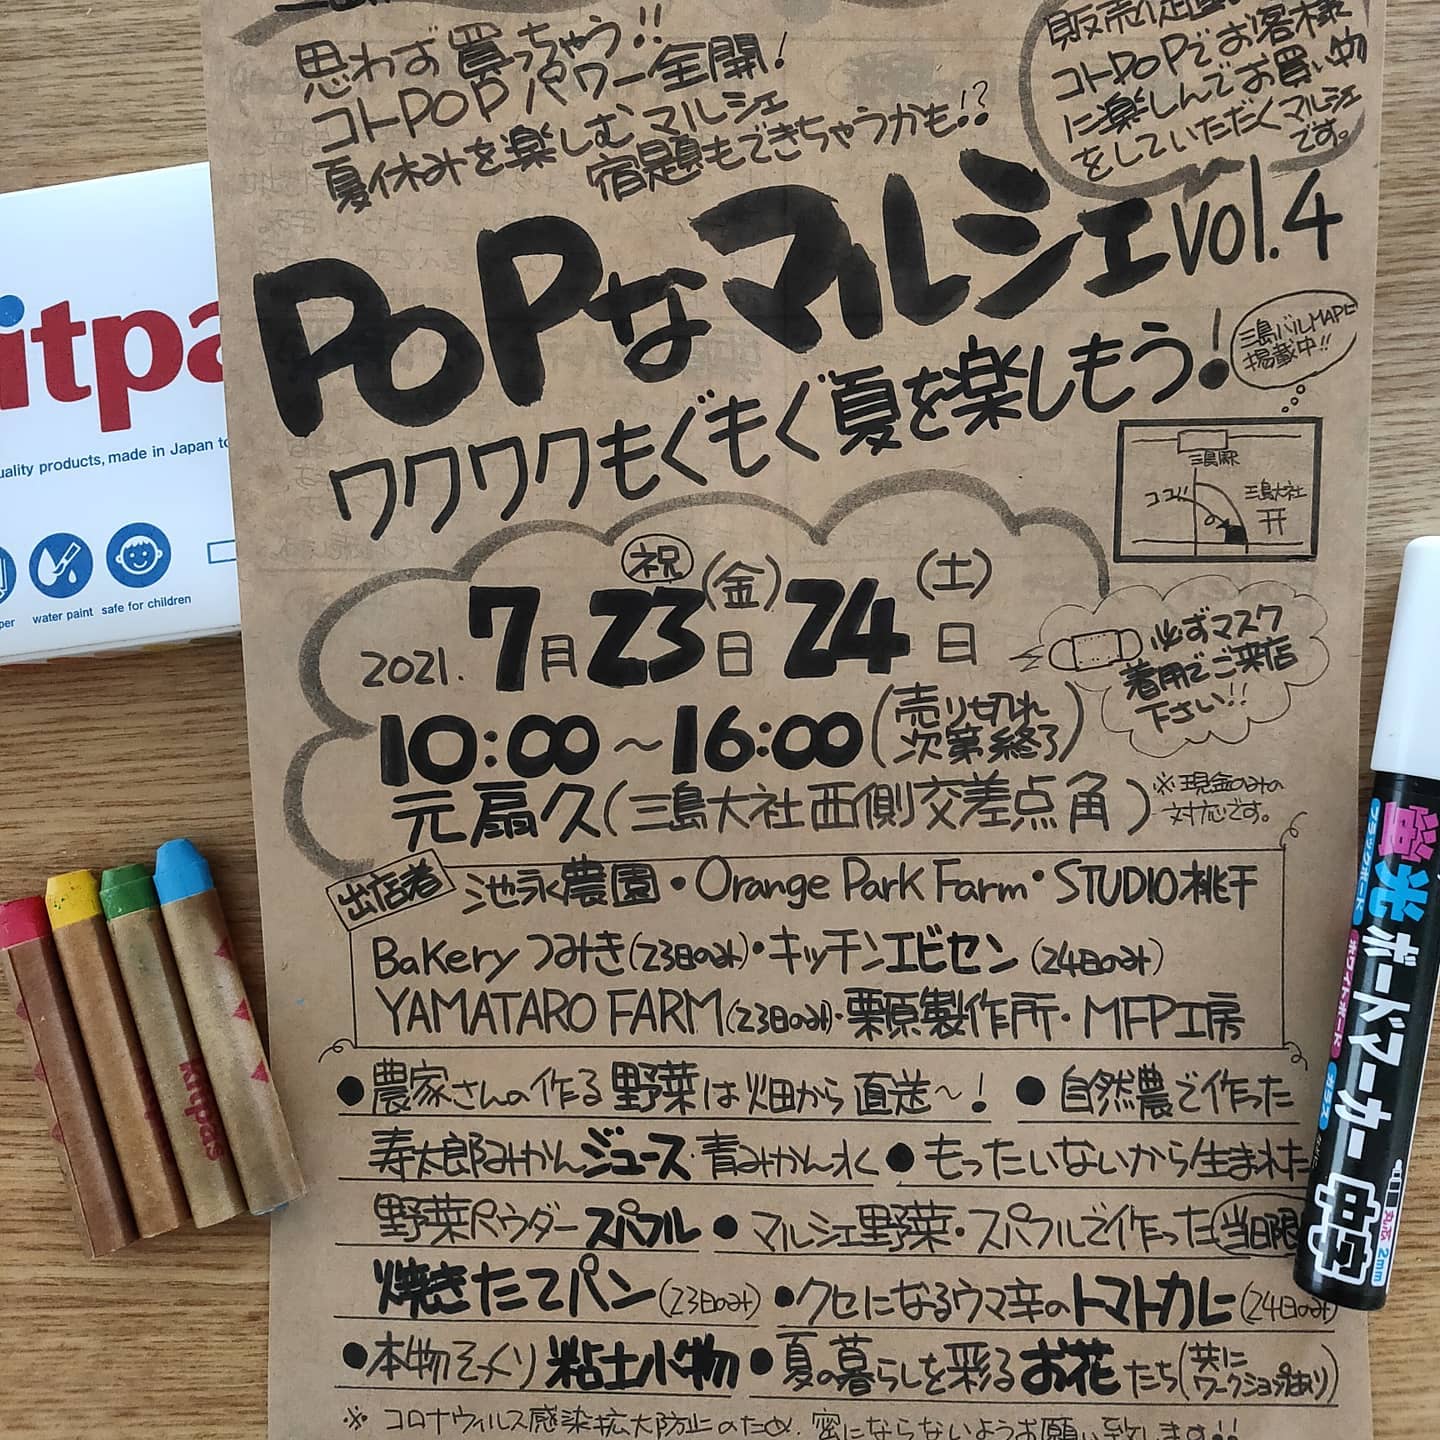 思わず買っちゃう!!
コトPOPパワー全開!
夏休みを楽しむマルシェ
宿題もできちゃうかも!?
コトPOPでお客様
に楽しんでお買い物
をしていただくマルシェ
です。
POPなマルシェvol.4
ワクワクもぐもぐ夏を楽しもう!
三島バルMAPに
掲載中!!
三島駅
ココ!!
三島大社
祝
2021.7月23日(金)24日(土)
必ずマスク
着用でご来店
下さい!!
10:00〜16:00(売り切れ次第終了)
元扇久(三島大社西側交差点角)
※現金のみの
対応です。
出店者
池永農園・Orange Park Farm・STUDIO桃干
Bakeryつみき(23日のみ)・キッチンエビセン(24日のみ)
YAMATARO FARM(23日のみ)・栗原製作所・MFP工房
●農家さんの作る野菜は畑から直送〜! ●自然農で作った
寿太郎みかんジュース・青みかん水 ●もったいないから生まれた
野菜パウダースパフル ●マルシェ野菜・スパフルで作った当日限
焼きたてパン(23日のみ) ●クセになるウマ辛のトマトカレー(24日のみ)
●本物そっくり粘土小物 ●夏の暮らしを彩るお花たち(共にワークショップあり)
※コロナウィルス感染拡大防止のため、密にならないようお願い致します!!
itpa
uality products, made in Japan to
per
water paint
safe for children
kitpas
蛍光ボードマーカー
ブラックボード
ホワイトボード
ガラス
中字
丸芯
2mm